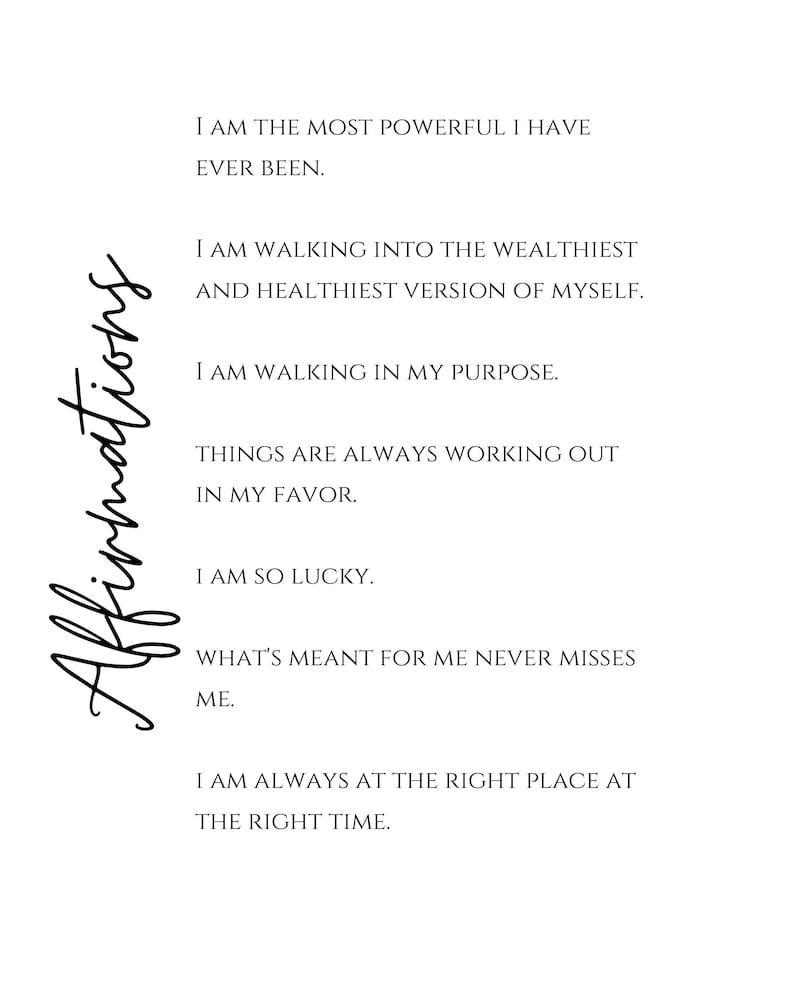 Affirmations
I AM THE MOST POWERFUL I HAVE
EVER BEEN.
I AM WALKING INTO THE WEALTHIEST
AND HEALTHIEST VERSION OF MYSELF.
I AM WALKING IN MY PURPOSE.
THINGS ARE ALWAYS WORKING OUT
IN MY FAVOR.
I AM SO LUCKY.
WHAT'S MEANT FOR ME NEVER MISSES
ME.
I AM ALWAYS AT THE RIGHT PLACE AT
THE RIGHT TIME.